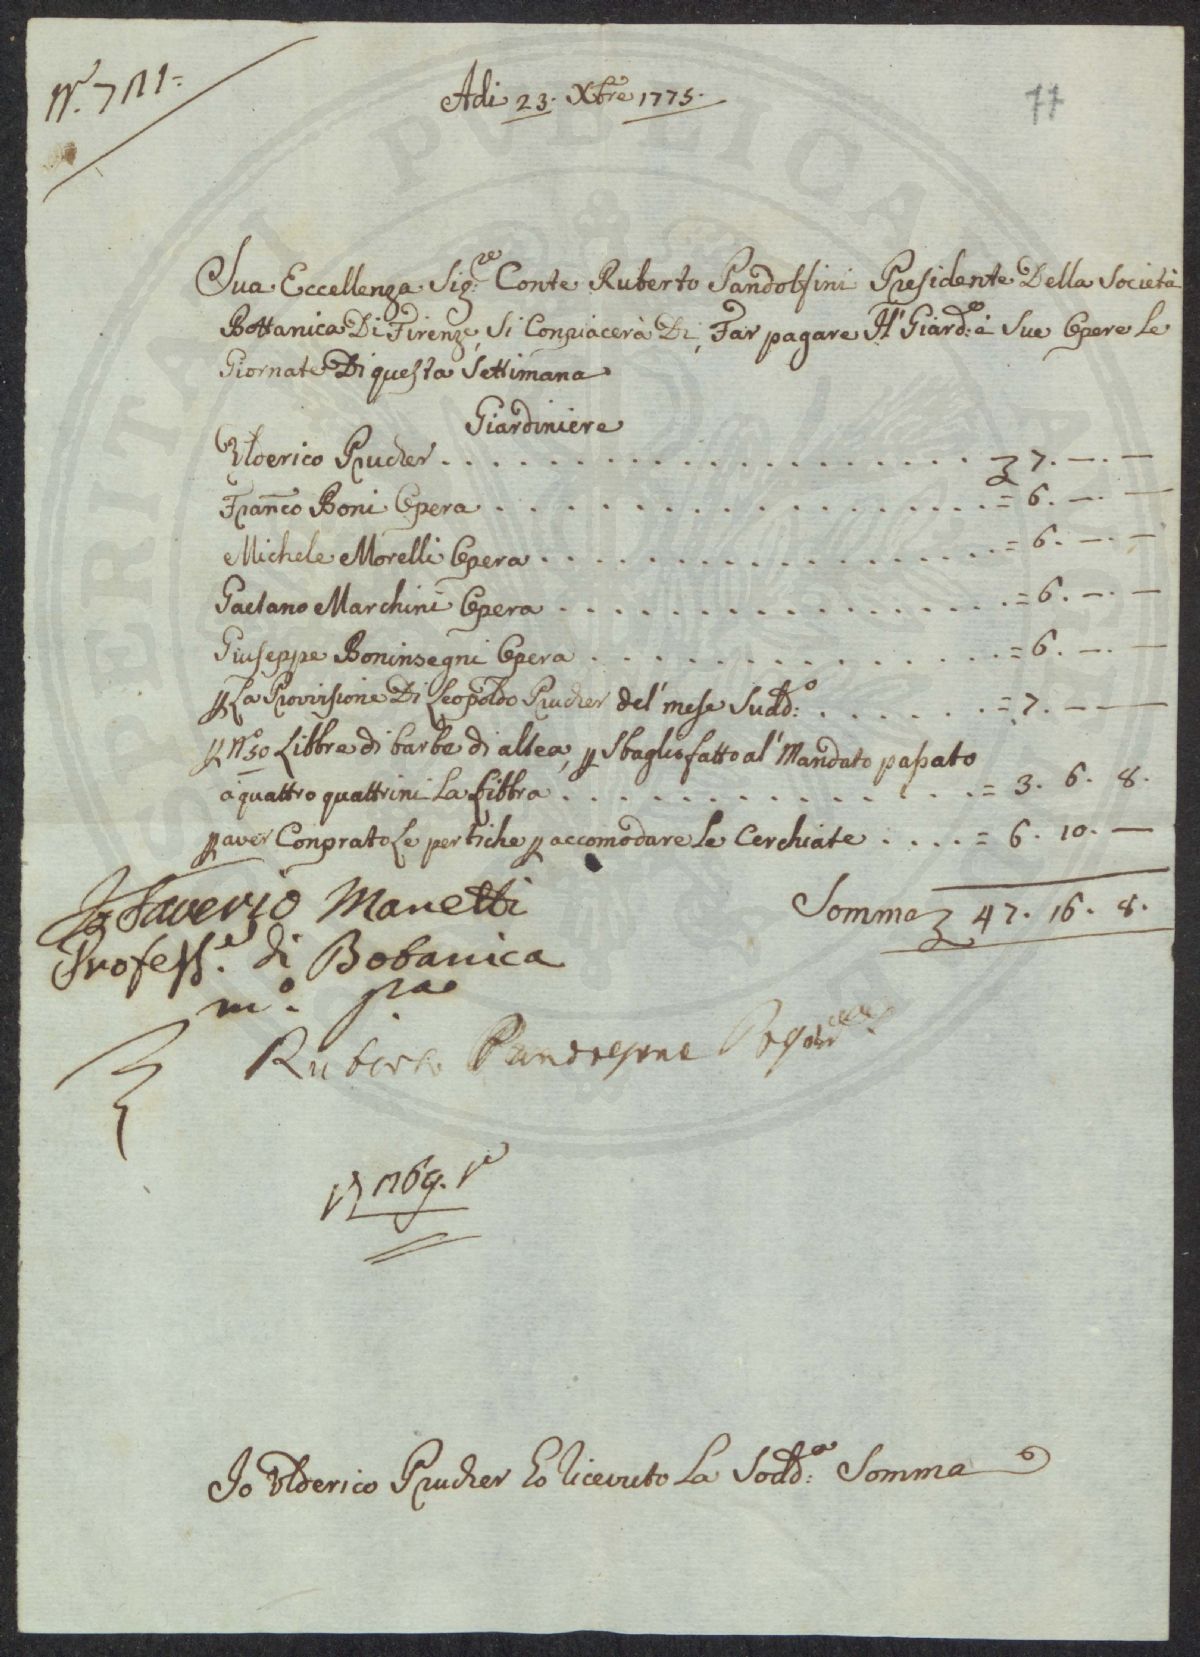 Adi 23. Xbre 1775.
77
Sua Eccellenza Sig.re Conte Ruberto Pandolfini Presidente Della Società
Bottanica Di Firenze, si Conpiacerà Di, Far pagare Al' Giard.e e Sue Opere le
Giornate Di questa Settimana
Giardiniere
Ulderico Prucher . . . . . . . . . . . . . . . . . . . . 7. —. —
Franco Boni Opera . . . . . . . . . . . . . . . . . . = 6. —. —
Michele Morelli Opera . . . . . . . . . . . . . . . . . = 6. —. —
Gaetano Marchini Opera . . . . . . . . . . . . . . . . = 6. —. —
Giuseppe Boninsegni Opera . . . . . . . . . . . . . . . = 6. —. —
p La Provvisione Di Leopoldo Prucher del' mese Sudd:o . . . . . . . = 7. — —
p N.o 50 Libbre di barbe di altea, p Sbaglio fatto al' Mandato passato
a quattro quattrini La Libbra . . . . . . . . . . . . . . = 3. 6. 8.
p aver Conprato Le pertiche p accomodare le Cerchiate . . . . . = 6. 10. —
Somma 47. 16. 8.
Saverio Manetti
Profess.e di Botanica
m.o pa
Ruberto Pandolfini
Io Ulderico Prucher ho ricevuto La Sodd:a Somma
PERITATI PUBLICAE